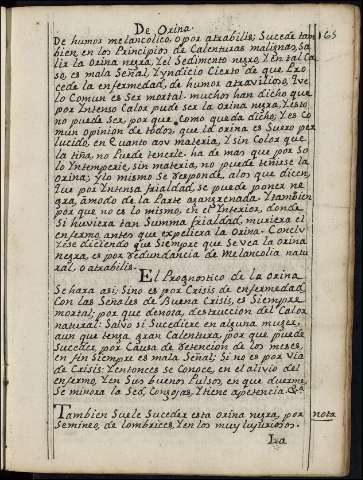 De Orina.
165
De humor melancolico, o por atrabilis; Sucede tam
bien en los Principios de Calenturas malignas, Sa
lir la Orina negra, y el Sedimento negro, Y en tal Ca
so, es mala Señal, Y yndicio Cierto de que Pro
cede la enfermedad, de humor atravilioso, Y ve
lo Comun es Ser mortal. muchos han dicho que
por Yntenso Calor puede Ser la Orina negra, Y esto,
no puede Ser, por que, Como queda dicho, Y es Co
mun Opinion de todos, que la orina es Suero per
lucido, en Cuanto asu materia, Y sin Color que
la tiña, no Puede tenerle. ha de mas que por So
lo Yntemperie, sin materia, no puede teñirse la
Orina; y lo mismo Se responde, alos que dicen,
que por Yntensa frialdad, se puede poner ne
gra, amodo de la Parte gangrenada. Y tambien
por que no es lo mismo, en el Ynterior, donde
Si huviera tan Summa frialdad, muriera el
enfermo, antes que expeliera la Orina. Concluy
Yese diciendo que Siempre que Se vea la orina
negra, es por redundancia de Melancolia natu
ral, o atrabilis.
El Prognostico de la Orina
Se hara asi; Sino es por Crisis de enfermedad
Con las Señales de Buena Crisis, es Siempre
mortal; por que denota, destruccion del Calor
natural: Salvo si Sucediere en alguna muger,
aun que tenga gran Calentura, por que puede
Suceder por Causa de retencion de los meses,
en fin Siempre es mala Señal; Si no es por via
de Crisis: Y entonces se Conoce, en el alivio del
enfermo, Y en Sus buenos Pulsos, en que duerme,
Se minora la Sed, Congojas, Y tiene apetencia &a.
Tambien Suele Suceder esta orina negra, por
nota
Semineo, de lombrices, Y en los muy lujuriosos.